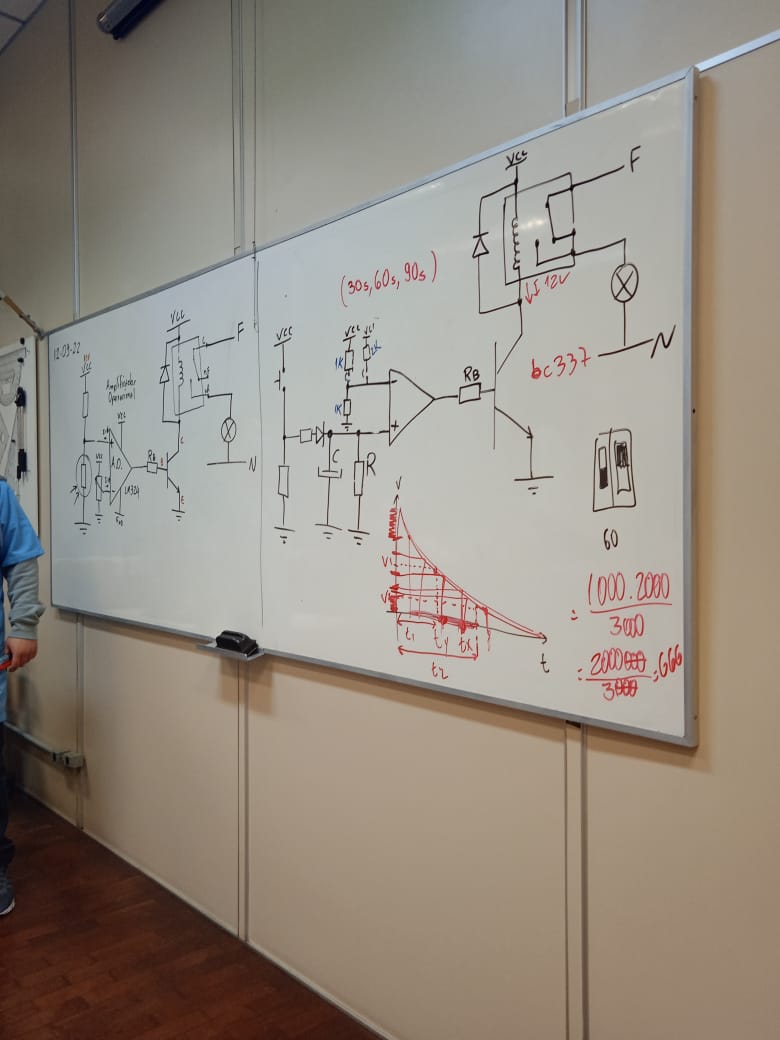 12-09-22
Amplificador
Operacional
VCC
VCC
VCC
A.O.
LM324
RB
B
C
E
F
N
(30s, 60s, 90s)
VCC
VCC
1K
1K
C
R
RB
VCC
F
↓I 12V
bc337
N
60
V
t1
ty
tx
t2
t
= 1000.2000
3000
= 2000000
3000
=666